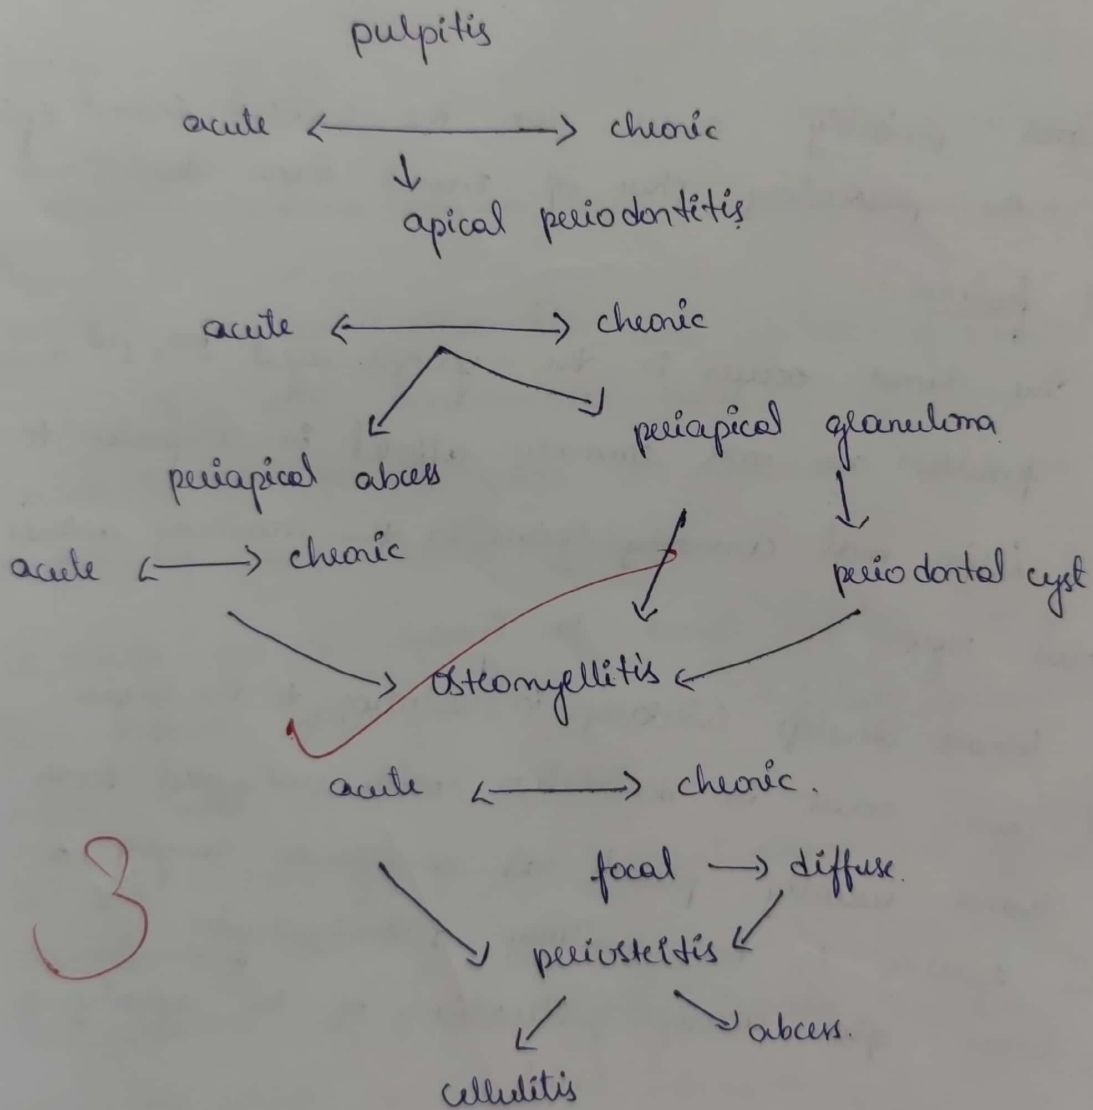 pulpitis
acute ⟷ chronic
↓
apical periodontitis
acute ⟷ chronic
periapical granuloma
periapical abcess
acute ⟷ chronic
periodontal cyst
osteomyellitis
acute ⟷ chronic.
focal → diffuse.
periosteitis
abcess.
cellulitis
3